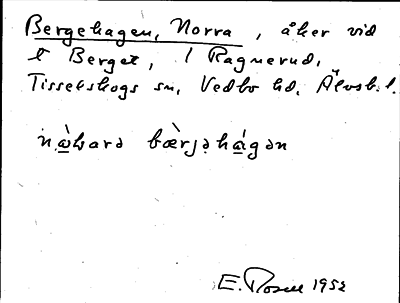 Bergehagen, Norra, åker vid
t Berget, 1 Ragnerud,
Tisselskogs sn, Vedbo hd. Älvsb. l.
nàwarə bæ̀rjəhágən
E. Rosell 1952